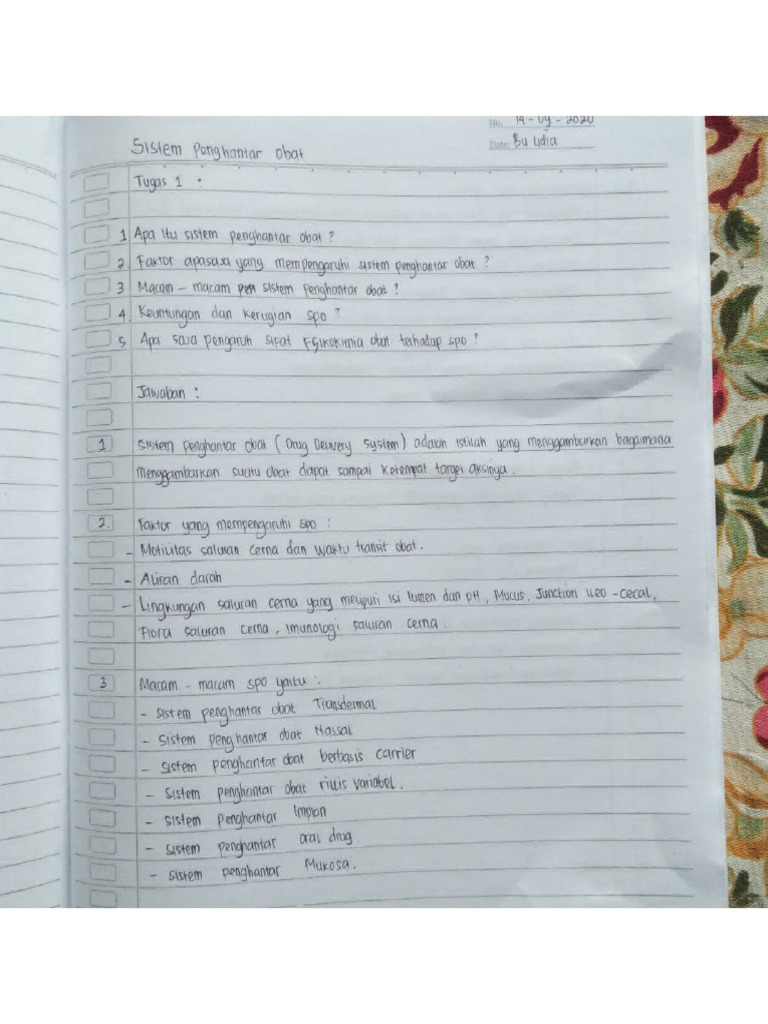 No. 14-09-2020
Sistem Penghantar obat
Date: Bu Lidia
Tugas 1 :
1 Apa itu sistem penghantar obat ?
2. Faktor apasaja yang mempengaruhi sistem penghantar obat ?
3 Macam - macam sistem penghantar obat !
4. Keuntungan dan kerugian spo ?
5 Apa saja pengaruh sifat Fsikokimia obat terhadap spo ?
Jawaban :
1 Sistem penghantar obat ( Drug Delivery System ) adalah istilah yang menggambarkan bagaimana
menggambarkan suatu obat dapat sampai ketempat target aksinya.
2. Faktor yang mempengaruhi spo :
- Motilitas saluran cerna dan waktu transit obat.
- Aliran darah
- Lingkungan saluran cerna yang meliputi isi lumen dan pH, Mucus, Junction ileo -cecal,
Flora saluran cerna, imunologi saluran cerna.
3 Macam - macam spo yaitu :
- Sistem penghantar obat Transdermal
- Sistem penghantar obat Nassal
- Sistem penghantar obat berbasis carrier
- Sistem penghantar obat rilis variabel.
- Sistem penghantar Implan
- Sistem penghantar oral drug
- Sistem penghantar Mukosa.